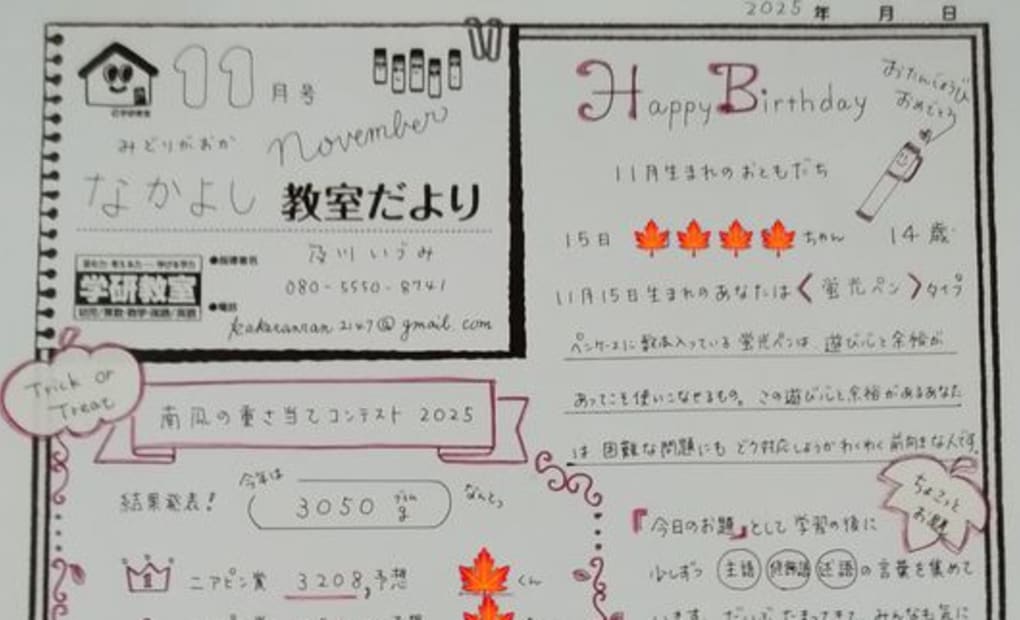 2025 年 月 日
11月号
November
みどりがおか
なかよし 教室だより
学研教室
●指導者名
及川 いづみ
●電話
080-5550-8741
kakaranran2147@gmail.com
Happy Birthday
おたんじょうび
おめでとう
11月生まれのおともだち
15日 ちゃん 14歳
11月15日生まれのあなたは〈蛍光ペン〉タイプ
ペンケースに数本入っている蛍光ペンは、遊び心と余裕が
あってこそ使いこなせるもの。この遊び心と余裕があるあなた
は 困難な問題にも どう対応しようかわくわく前向きな人です。
Trick or
Treat
南瓜の重さ当てコンテスト 2025
結果発表!
今年は
3050 g
なんとっ
1 ニアピン賞 3208,予想 くん
ちょこっと
お題
『今日のお題』として学習の後に
少しずつ 主語 修飾語 述語 の言葉を集めて
います。だいぶたまってきて、みんなも気に